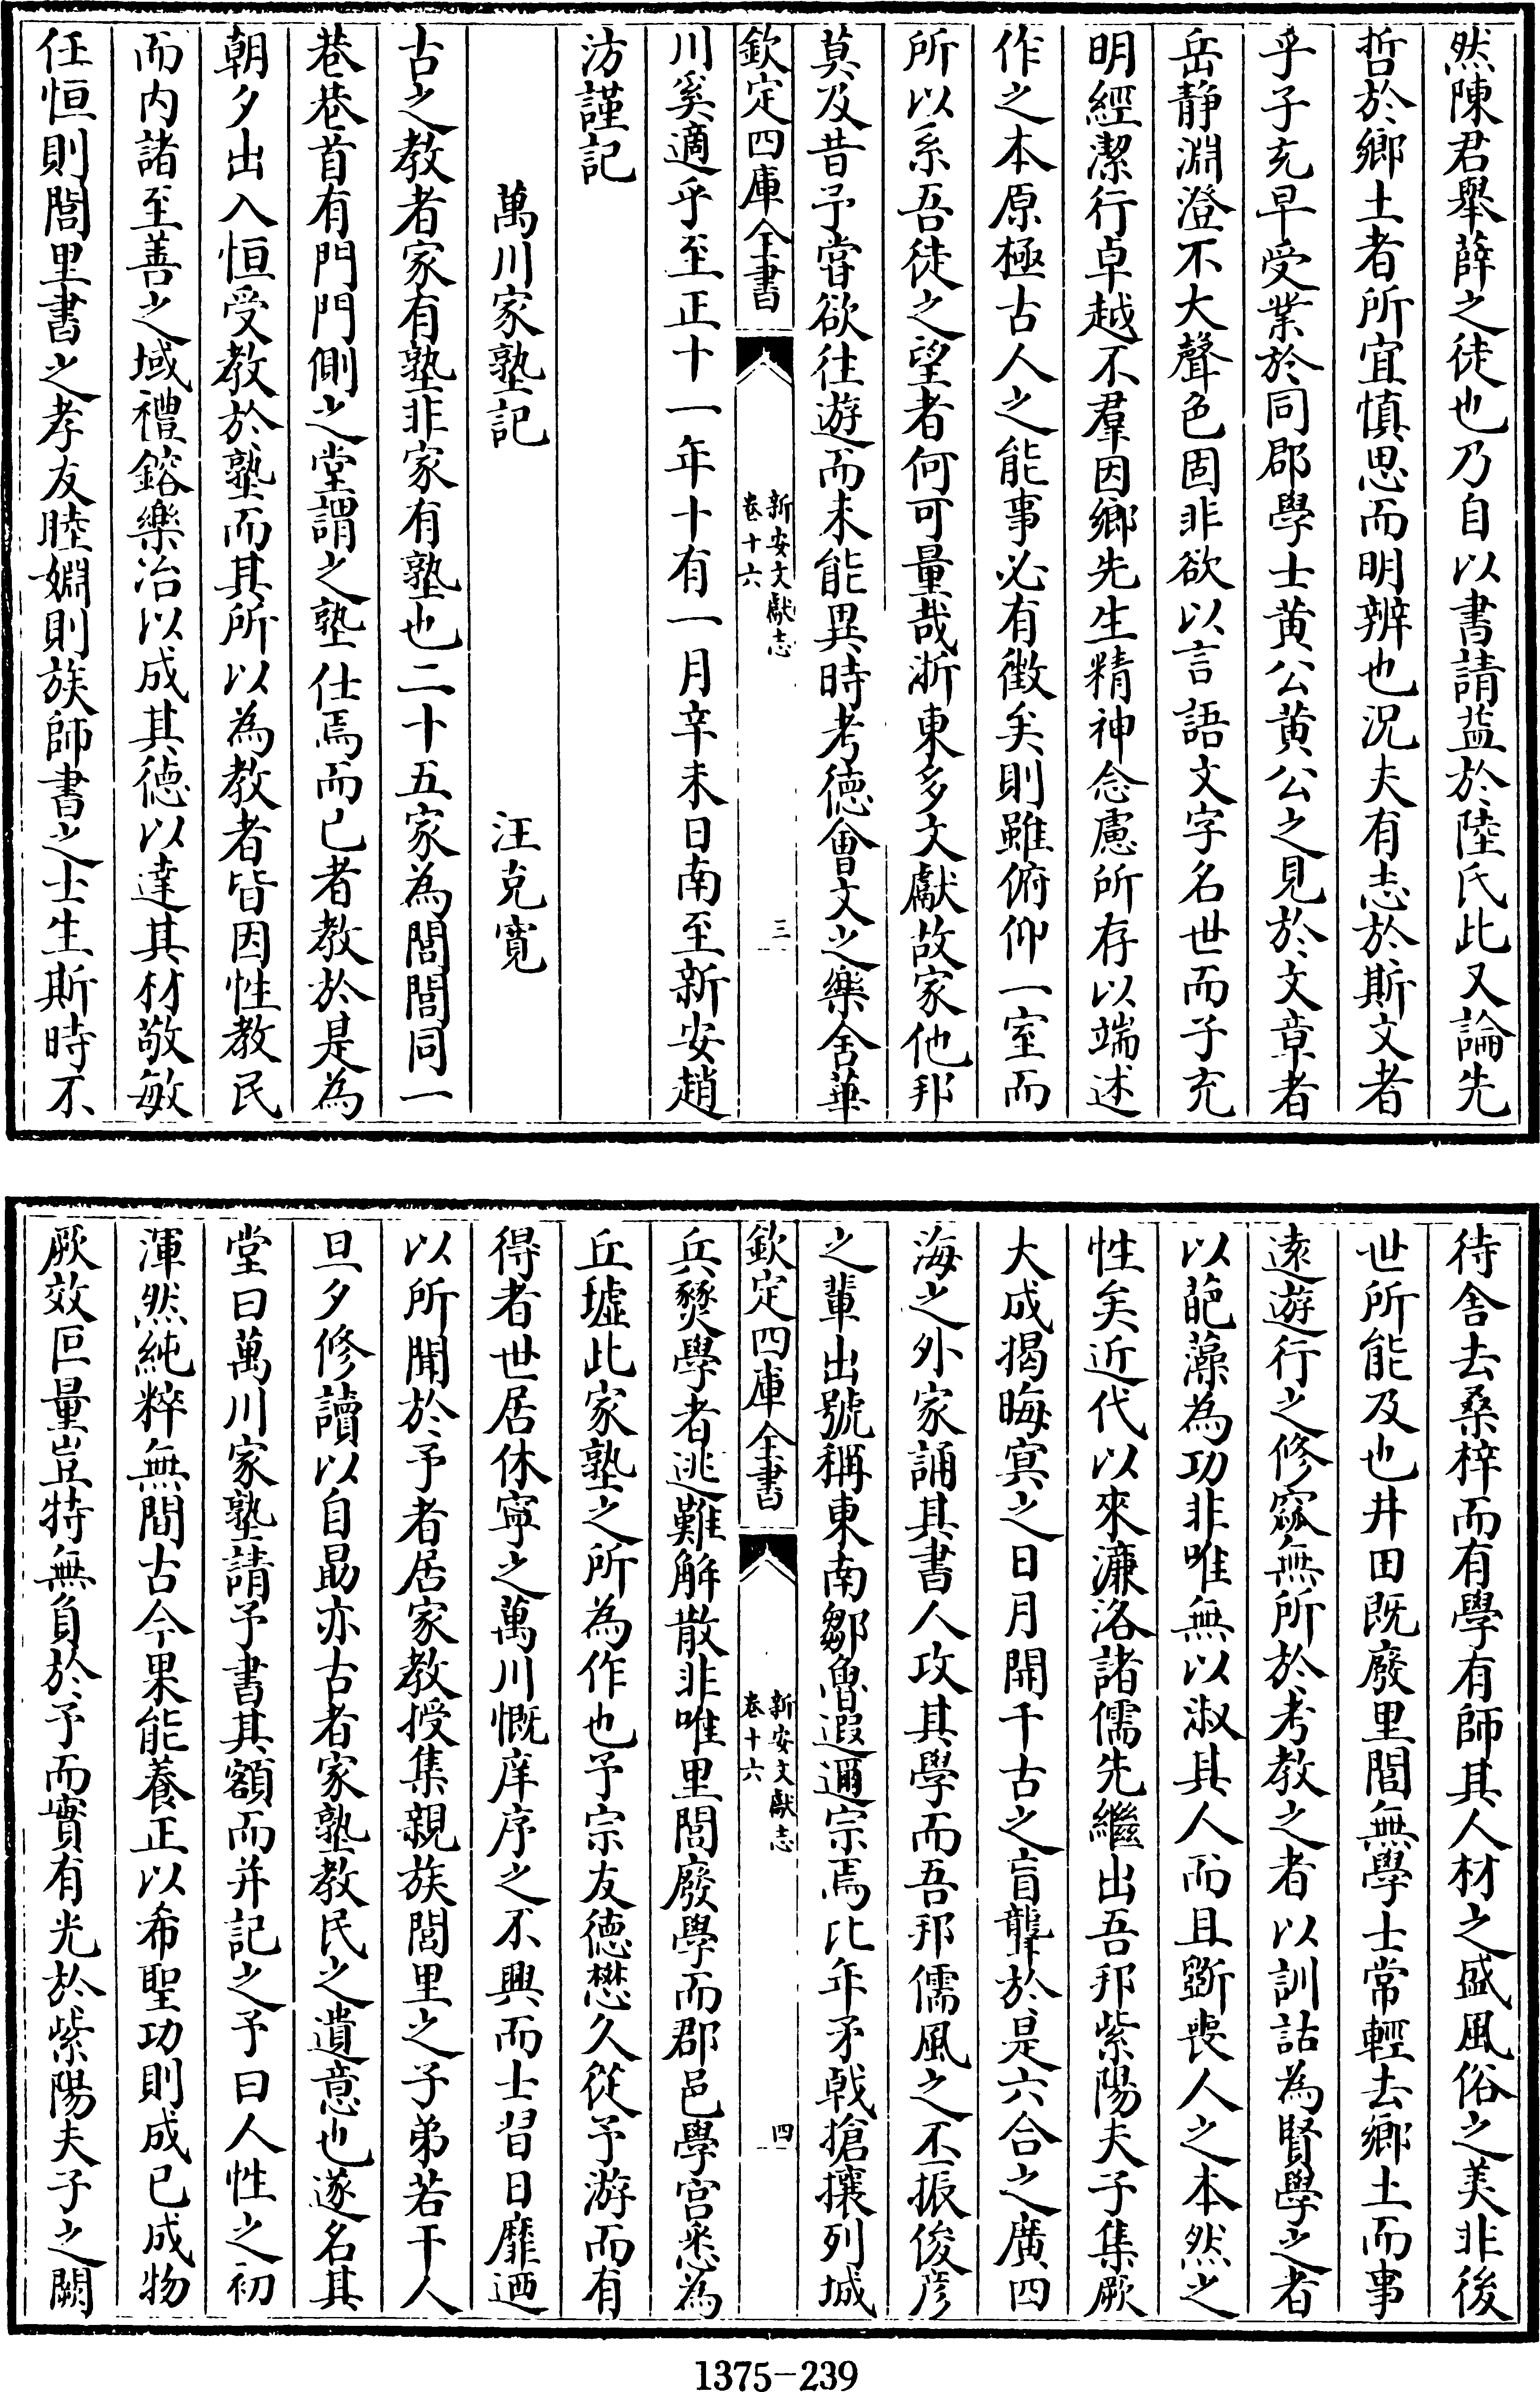 然陳君舉薛之徒也乃自以書請益於陸氏此又論先
哲於鄉土者所宜慎思而明辨也況夫有志於斯文者
乎子充早受業於同郡學士黃公黃公之見於文章者
岳靜淵澄不大聲色固非欲以言語文字名世而子充
明經潔行卓越不羣因鄉先生精神念慮所存以端述
作之本原極古人之能事必有徵矣則雖俯仰一室而
所以系吾徒之望者何可量哉浙東多文獻故家他邦
莫及昔予嘗欲往遊而未能異時考德會文之樂舍華
欽定四庫全書
新安文獻志
卷十六
三
川奚適乎至正十一年十有一月辛未日南至新安趙
汸謹記
萬川家塾記
汪克寬
古之教者家有塾非家有塾也二十五家為閭閭同一
巷巷首有門門側之堂謂之塾仕焉而已者教於是為
朝夕出入恒受教於塾而其所以為教者皆因性教民
而内諸至善之域禮鎔樂冶以成其德以達其材敬敏
任恒則閭里書之孝友睦婣則族師書之士生斯時不
待舍去桑梓而有學有師其人材之盛風俗之美非後
世所能及也井田既廢里閭無學士常輕去鄉土而事
遠遊行之修窳無所於考教之者以訓詁為賢學之者
以葩藻為功非唯無以淑其人而且斵喪人之本然之
性矣近代以來濂洛諸儒先繼出吾邦紫陽夫子集厥
大成揭晦冥之日月開千古之盲聾於是六合之廣四
海之外家誦其書人攻其學而吾邦儒風之丕振俊彦
之輩出號稱東南鄒魯遐邇宗焉比年矛戟搶攘列城
欽定四庫全書
新安文獻志
卷十六
四
兵燹學者逃難解散非唯里閭廢學而郡邑學宫悉為
丘墟此家塾之所為作也予宗友德懋久從予游而有
得者世居休寧之萬川慨庠序之不興而士習日靡迺
以所聞於予者居家教授集親族閭里之子弟若干人
旦夕修讀以自勗亦古者家塾教民之遺意也遂名其
堂曰萬川家塾請予書其額而并記之予曰人性之初
渾然純粹無間古今果能養正以希聖功則成已成物
厥效叵量豈特無負於予而實有光於紫陽夫子之闕
1375-239